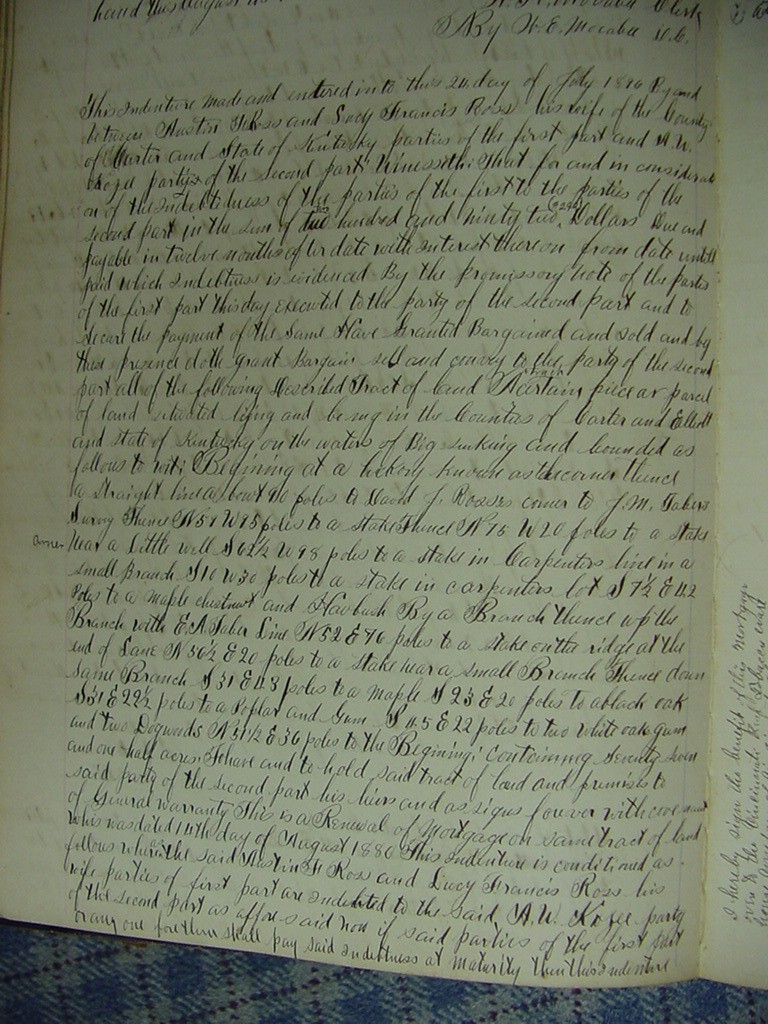 hand this August
By W. E. Mocabee D.C.
This Indenture made and entered into this 24 day of July 18 By and
between Austin F Ross and Lucy Francis Ross his wife of the County
of Carter and State of Kentucky parties of the first part and A. W.
party of the second part Witnesseth That for and in considerati
on of the Indebtedness of the parties of the first to the parties of the
second part in the sum of hundred and ninety two Dollars Due and
payable in twelve months after date with interest thereon from date untill
paid which Indebtness is evidenced By the promissory note of the parties
of the first part this day executed to the party of the second part and to
secure the payment of the same Have Granted Bargained and sold and by
these presence doth grant Bargain sell and convey to the party of the second
part all of the following Described Tract of land A certain piece or parcel
of land situated lying and being in the Counties of Carter and Elliott
and state of Kentucky on the waters of Big sinking and bounded as
follows to wit: Begining at a hickory known as the corner thence
a straight line about 90 poles to David J. Rosses corner to J. M. Tabers
Survey Thence N 59 W 95 poles to a stake Thence N 75 W 20 poles to a stake
near a Little well S 62½ W 98 poles to a stake in Carpenters line in a
small Branch S 10 W 30 poles to a stake in carpenters lot S 7½ E 42
poles to a maple chestnut and By a Branch thence up the
Branch with E. A. Taber Line N 52 E 76 poles to a stake on the ridge at the
end of Lane N 56½ E 20 poles to a stake near a small Branch Thence down
same Branch S 31 E 43 poles to a maple S 23 E 20 poles to a black oak
S 31 E 22½ poles to a Poplar and Gum S 45 E 22 poles to two white oak gum
and two Dogwoods N 31½ E 36 poles to the Begining: containing seventy seven
and one half acres. To have and to hold said tract of land and premises to
said party of the second part his heirs and assigns forever with covenant
of General warranty This is a Renewal of Mortgage on same tract of land
was dated 14th day of August 1886 This Indenture is conditioned as
follows the said Austin F Ross and Lucy Francis Ross his
wife parties of first part are indebted to the said A. W. party
of the second part as afforesaid now if said parties of the first part
or any one for them shall pay said indebtness at maturity then this Indenture
I hereby sign the benefit of this mortgage